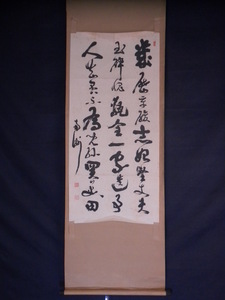 幾歷辛酸志始堅丈夫
玉碎愧甎全一家遺事
人知否不為児孫買美田
南洲